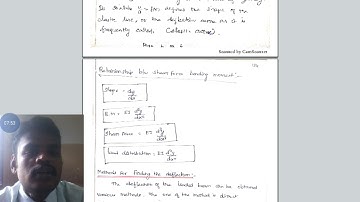 So relation y = f(x), defines the shape of the
elastic line, or the deflection curve as it is
frequently called. (elastic curve).
Scanned by CamScanner
Relationship b/w shear force bending moment:-
Slope = dy/dx
B.M = EI d²y/dx²
Shear force = EI d³y/dx³
load distribution = EI d⁴y/dx⁴
Methods for finding the deflection:-
The deflection of the loaded beam can be obtained
various methods. The one of the method is direct